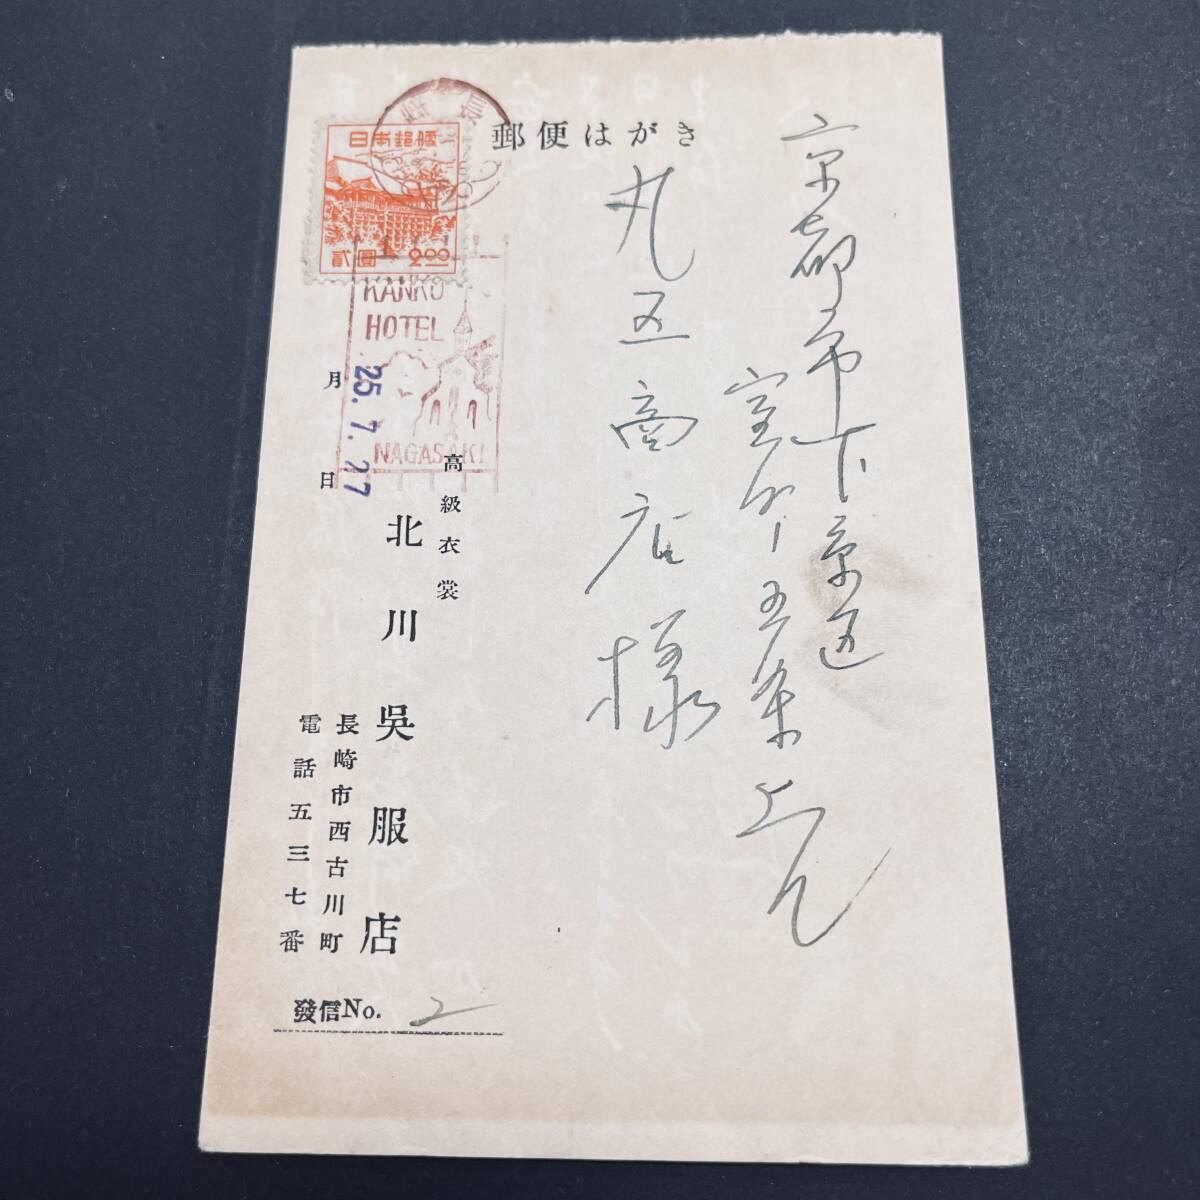 郵便はがき
京都市下京区
室町五条上ル
丸五商店様
日本郵便
貳圓 2.00
長崎
KANKO
HOTEL
NAGASAKI
月 日
25.7.27
高級衣裳
北川吳服店
長崎市西古川町
電話五三七番
發信No. 2